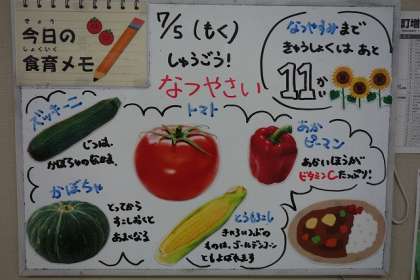 今日の
しょくいく
食育メモ
7/5(もく)
しゅうごう!
なつやさい
なつやすみまで
きゅうしょくは あと
11かい
ズッキーニ
じつは、
かぼちゃのなかま。
トマト
あか
ピーマン
あかいほうが
ビタミンCたっぷり!
かぼちゃ
とってから
すこしおくと
あまくなる
とうもろこし
きいろいつぶの
ものは、ゴールデンコーン
ともよばれます